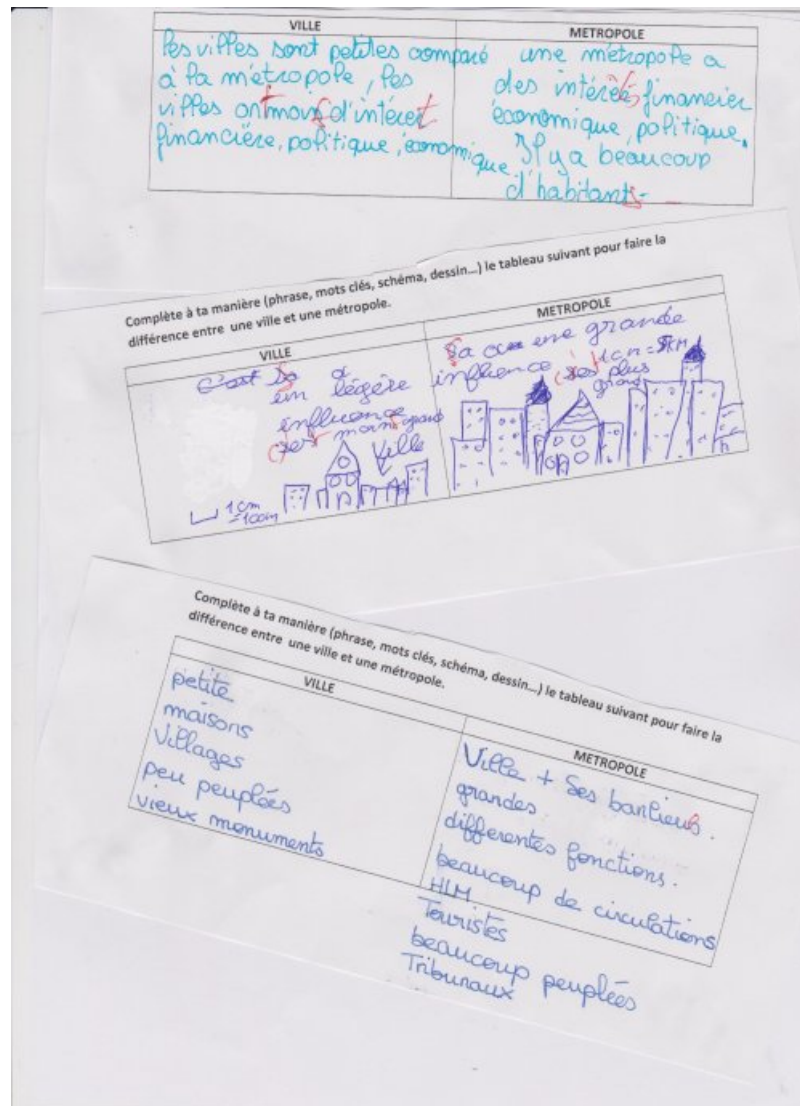 VILLE
METROPOLE
les villes sont petites comparé
à la métropole, les
villes ont d'intéret
financière, politique, économique.
une métropole a
des financier
économique, politique.
Il y a beaucoup
d'habitants.
Complète à ta manière (phrase, mots clés, schéma, dessin…) le tableau suivant pour faire la
différence entre une ville et une métropole.
VILLE
METROPOLE
C'est
un légère
influence
moins grand
Ville
1 cm
=100m
a une grande
influence
plus
grand
Complète à ta manière (phrase, mots clés, schéma, dessin…) le tableau suivant pour faire la
différence entre une ville et une métropole.
VILLE
petite
maisons
Villages
peu peuplées
vieux monuments
METROPOLE
Ville + Ses banlieues.
grandes.
differentes fonctions.
beaucoup de circulations
HLM
Touristes
beaucoup peuplées
Tribunaux